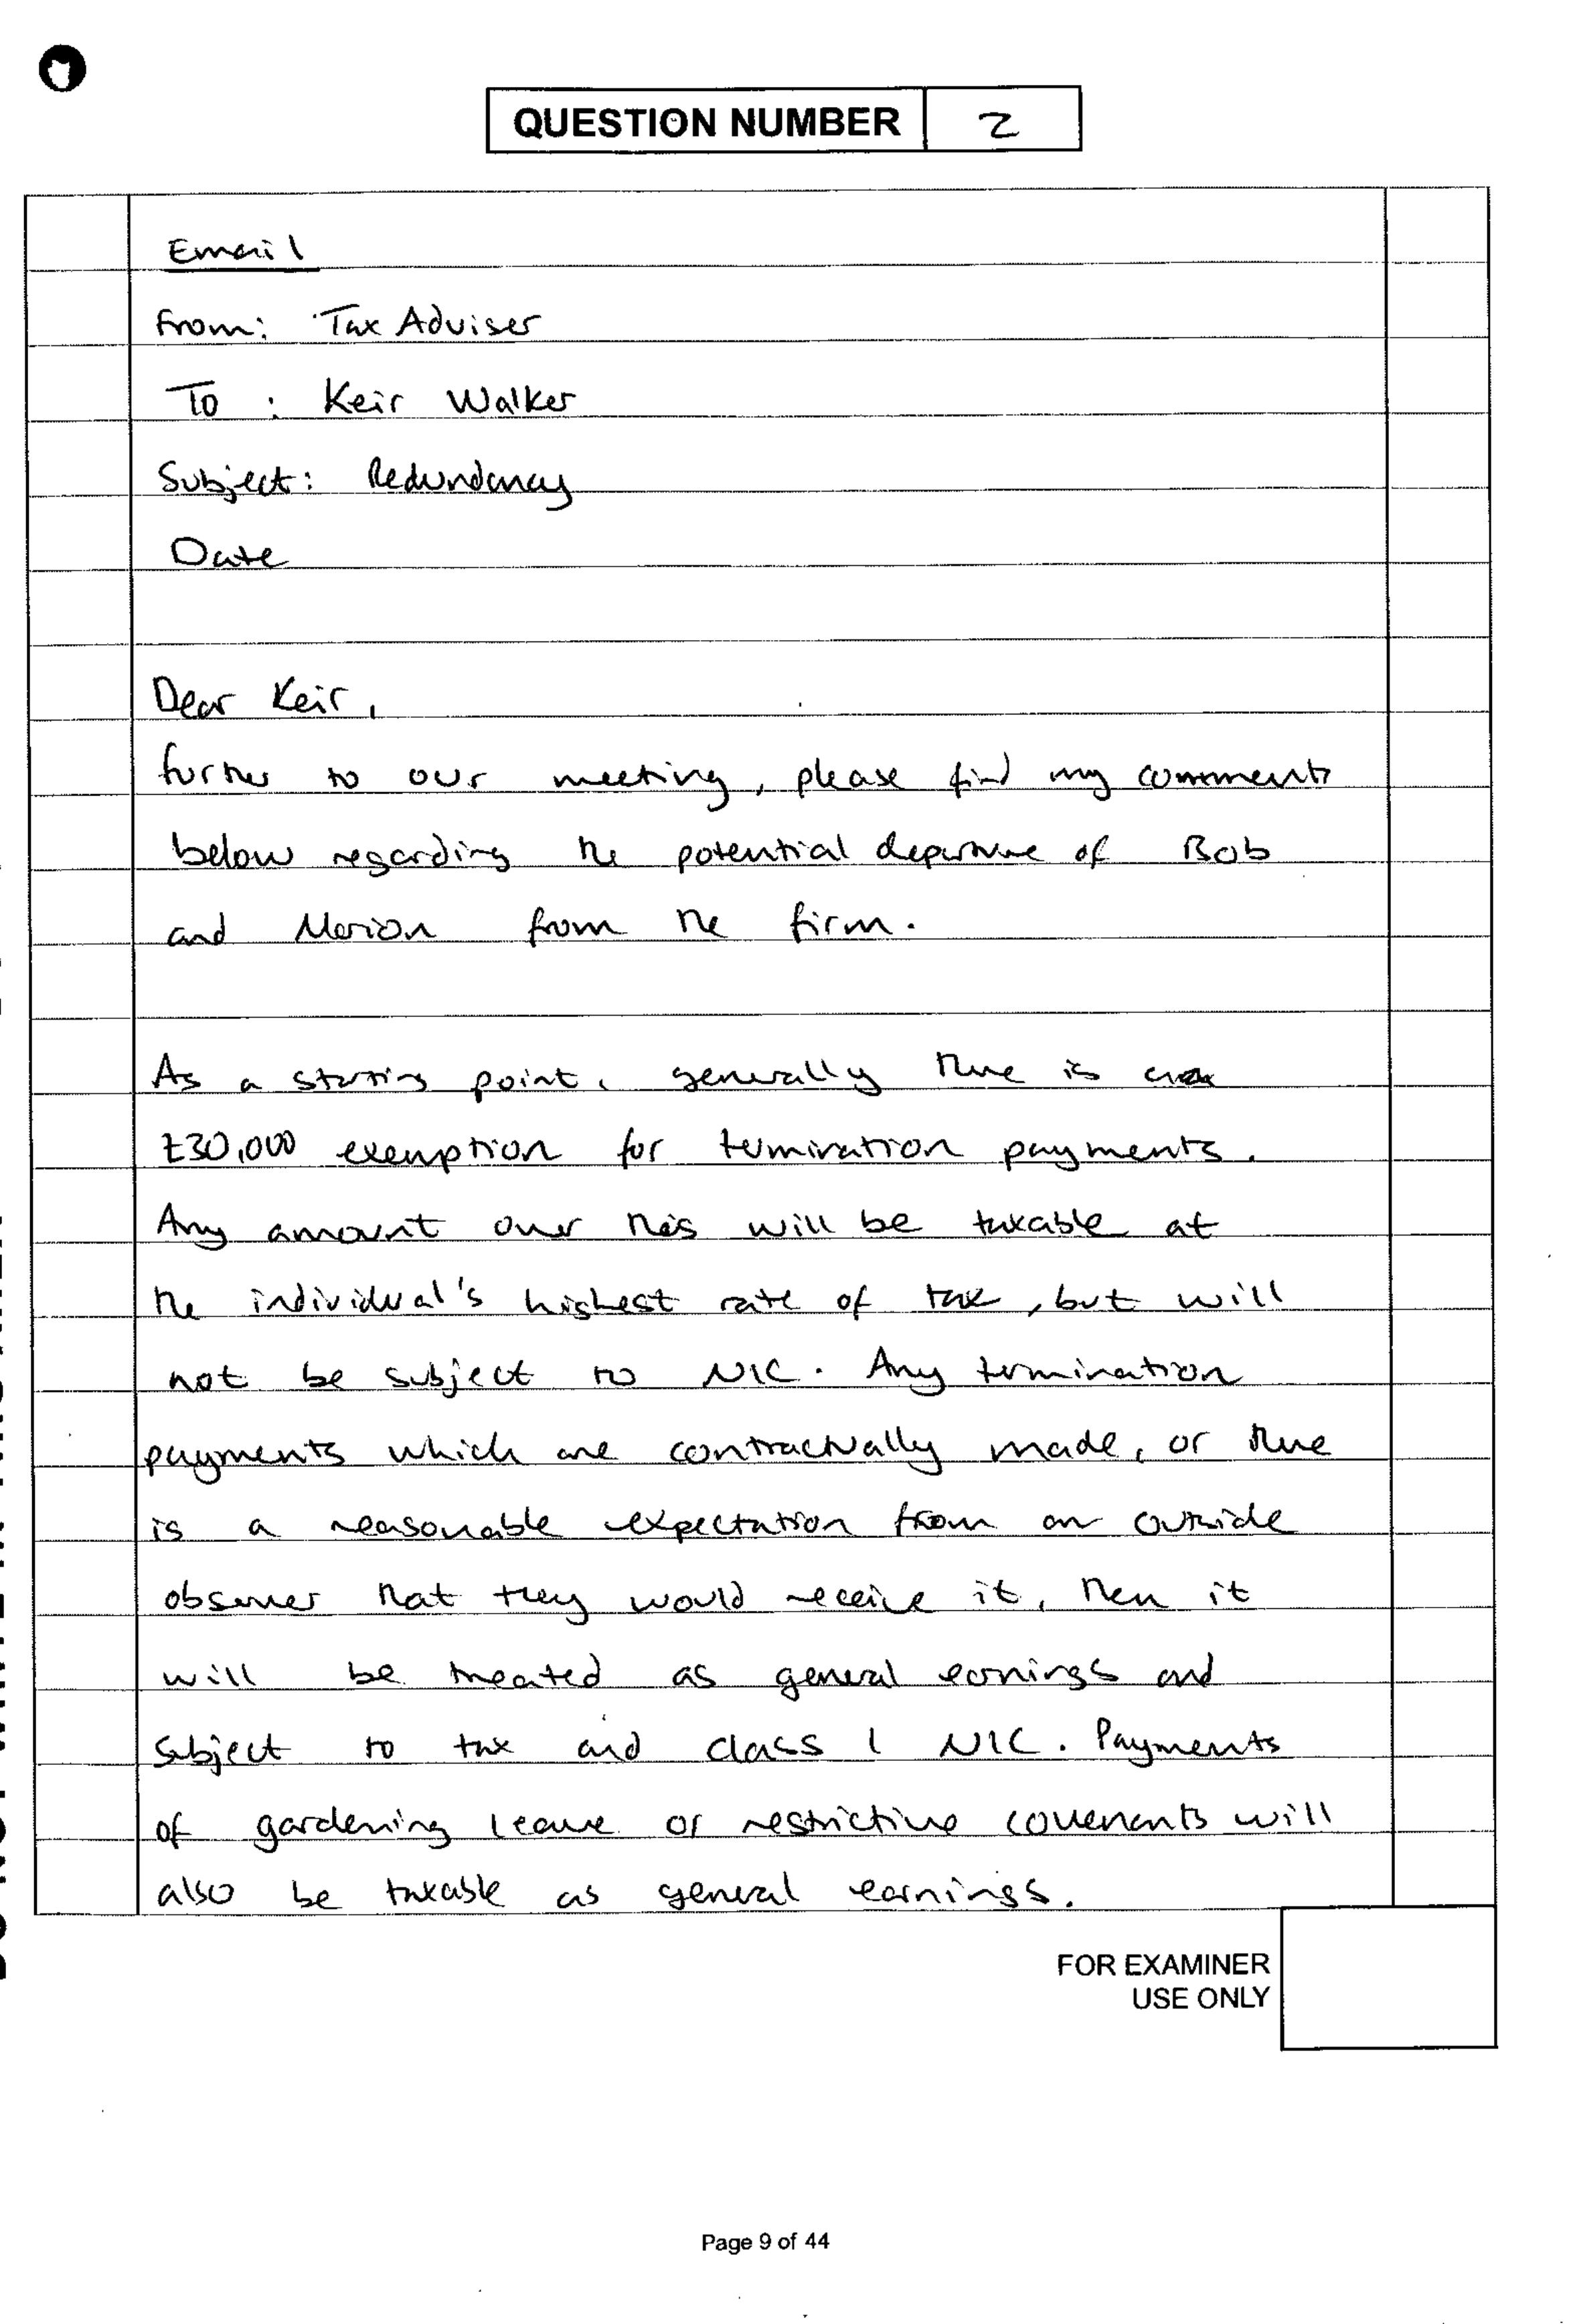 QUESTION NUMBER 2
Email
From: Tax Adviser
To : Keir Walker
Subject: Redundancy
Date
Dear Keir,
further to our meeting, please find my comments
below regarding the potential departure of Bob
and Marion from the firm.
As a starting point, generally there is a
£30,000 exemption for termination payments.
Any amount over this will be taxable at
the individual's highest rate of tax, but will
not be subject to NIC. Any termination
payments which are contractually made, or there
is a reasonable expectation from an outside
observer that they would receive it, then it
will be treated as general earnings and
subject to tax and class 1 NIC. Payments
of gardening leave or restrictive covenants will
also be taxable as general earnings.
FOR EXAMINER
USE ONLY
Page 9 of 44